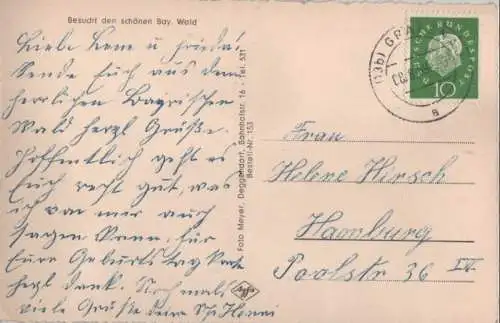 Besucht den schönen Bay. Wald
Liebe Lene u Frieda!
Sende Euch aus dem
herrlichen Bayrischen
Wald herzl Grüße.
Hoffentlich geht es
Euch recht gut, was
ich von mir auch
sagen kann. Für
Eure Geburtstag Karte
herzl dank. Nochmals
viele Grüße deine
Foto Meyer, Deggendorf, Bahnhofstr. 16 - Tel. 531
Bestell-Nr. 153
Agfa
(13b) GRA
a
DEUTSCHE BUNDESPOST
10
Frau
Helene Hirsch
Hamburg
Poolstr 36 IV.